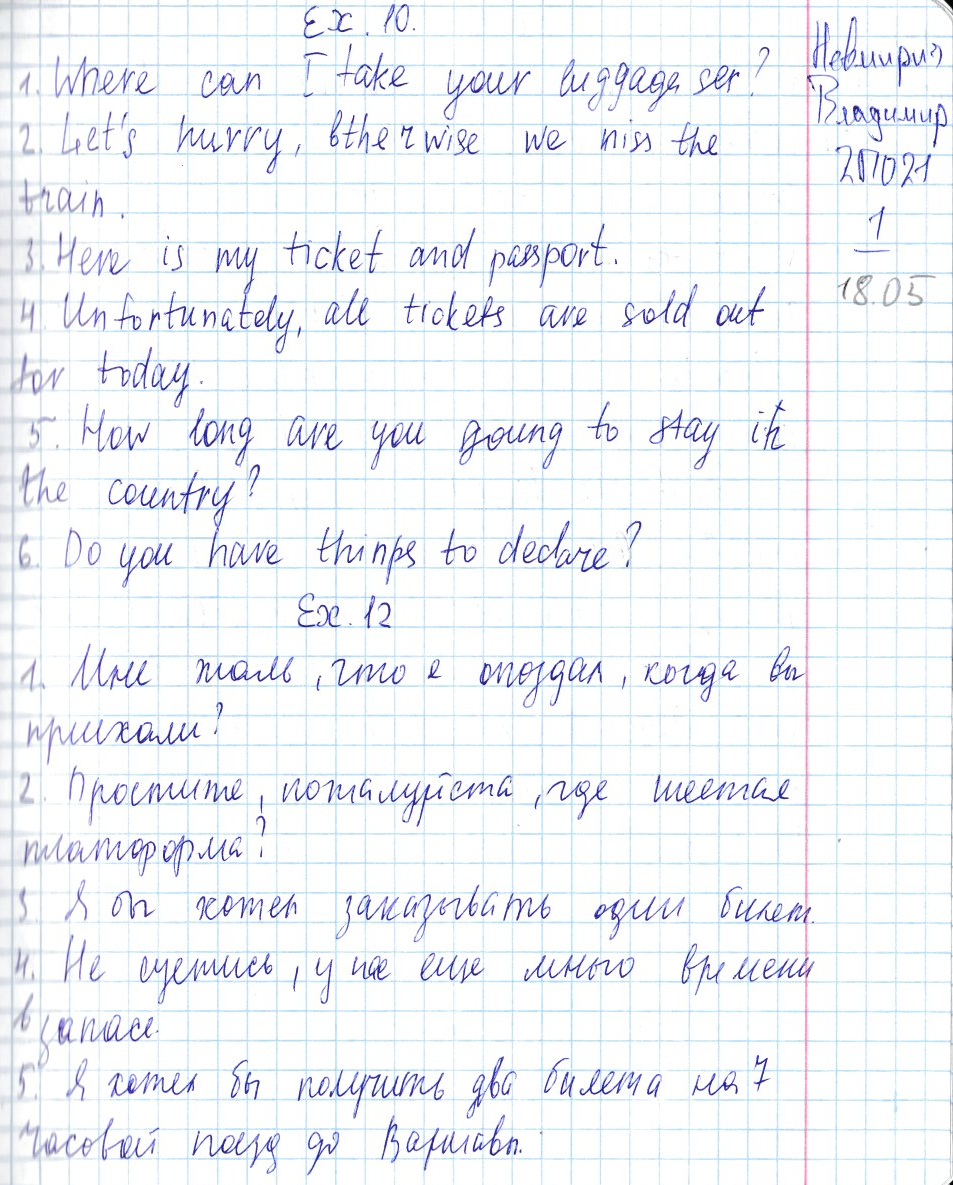 Ex. 10.
1. Where can I take your luggage ser?
2. Let's hurry, otherwise we miss the
train.
3. Here is my ticket and passport.
4. Unfortunately, all tickets are sold out
for today.
5. How long are you going to stay in
the country?
6. Do you have things to declare?
Ex. 12
1. Мне жаль, что я опоздал, когда вы
приехали?
2. Простите, пожалуйста, где шестая
платформа?
3. Я бы хотел заказывать один билет.
4. Не суетись, у нас еще много времени
в запасе.
5. Я хотел бы получить два билета на 7
часовой поезд до Варшавы.
Владимир
2П021
1
18.05